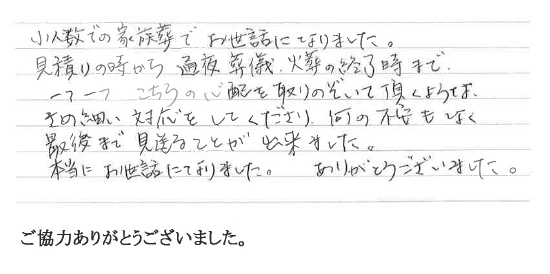 小人数での家族葬でお世話になりました。
見積りの時から通夜葬儀、火葬の終了時まで、
一つ一つこちらの心配を取りのぞいて頂くような、
きめ細い対応をしてくださり、何の不安もなく
最後まで見送ることが出来ました。
本当にお世話になりました。 ありがとうございました。
ご協力ありがとうございました。